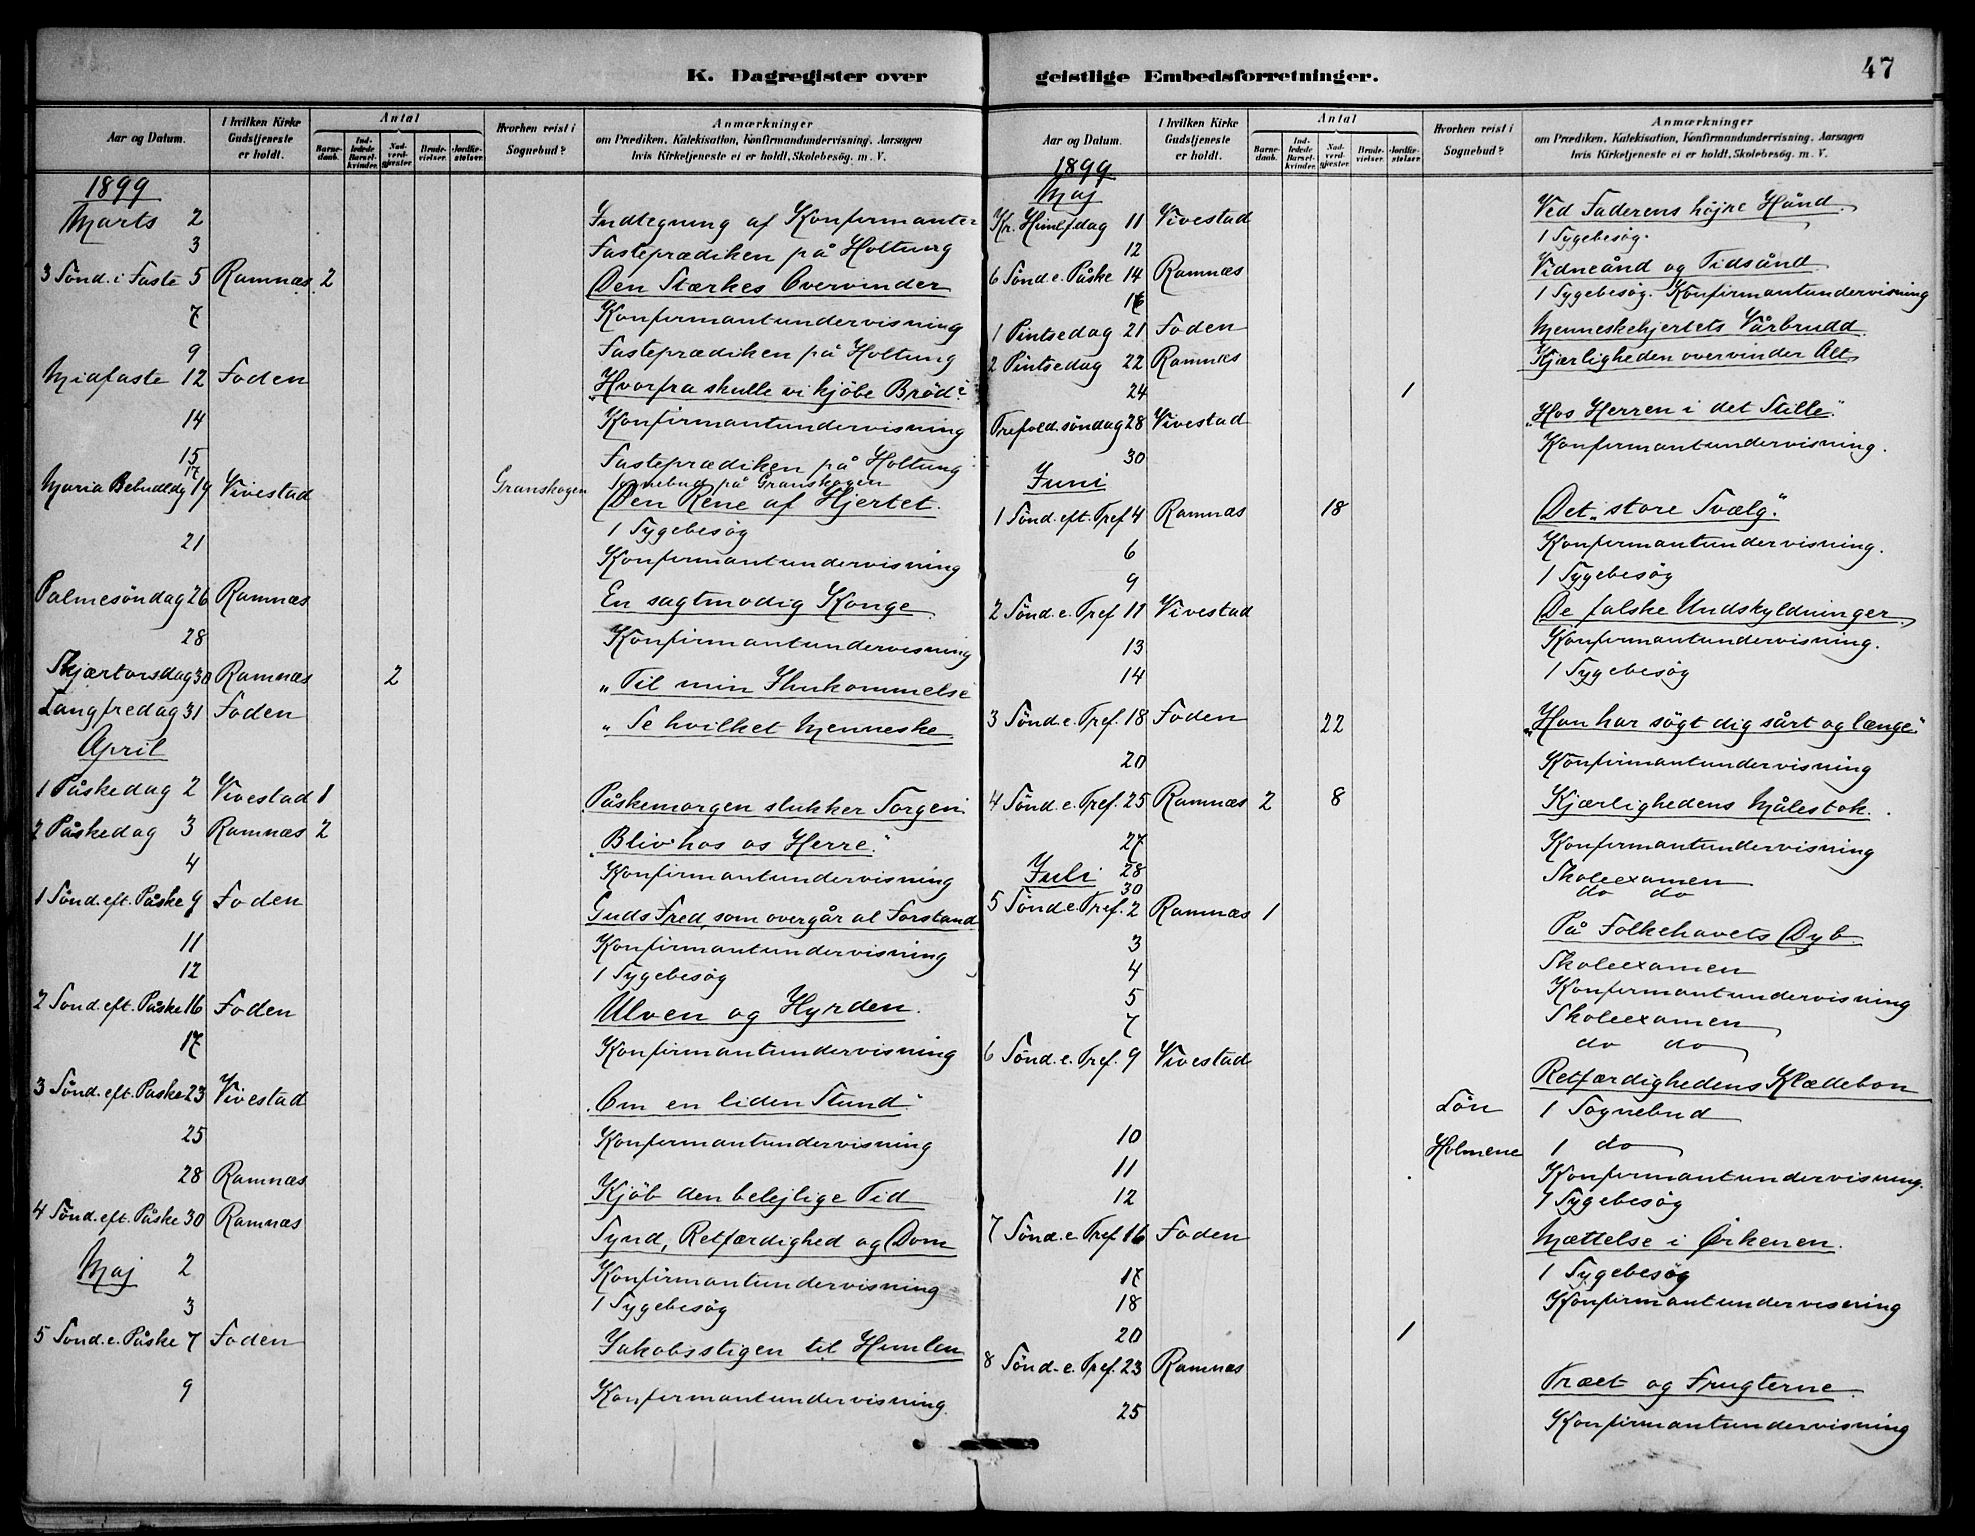 K. Dagregister over
Aar og Datum. | I hvilken Kirke Gudstjeneste er holdt. | Antal | Barnedaab. | Indledede Barselkvinder. | Nadverdgjester | Brudevielser. | Jordfæstelser. | Hvorhen reist i Sognebud? | Anmærkninger om Prædiken, Katekisation, Konfirmandundervisning, Aarsagen hvis Kirketjeneste ei er holdt, Skolebesög. m. V.
1899
Marts 2 Indtegning af Konfirmanter
3 Fasteprædiken på Holtung
3 Sönd. i Faste 5 Ramnæs 2 Den Stærkes Overvinder
7 Konfirmantundervisning
9 Fasteprædiken på Holtung
Midfaste 12 Foden „Hvorfra skulle vi kjöbe Bröd"
14 Konfirmantundervisning
15 Fasteprædiken på Holtung
17 Granskogen Sognebud på Granskogen
Maria Bebudeldg 19 Vivestad Den Rene af Hjertet.
1 Sygebesög
21 Konfirmantundervisning
Palmesöndag 26 Ramnæs En sagtmodig Konge
28 Konfirmantundervisning
Skjærtorsdag 30 Ramnæs 2 „Til min Ihukommelse
Langfredag 31 Foden „Se hvilket Menneske
April
1 Påskedag 2 Vivestad 1 Påskemorgen slukker Sorgen
2 Påskedag 3 Ramnæs 2 „Bliv hos os Herre"
4 Konfirmantundervisning
1 Sönd. eft. Påske 9 Foden Guds Fred, som overgår al Forstand
11 Konfirmantundervisning
12 1 Sygebesög
2 Sönd. eft. Påske 16 Foden Ulven og Hyrden.
17 Konfirmantundervisning
3 Sönd. eft. Påske 23 Vivestad „Om en liden Stund"
25 Konfirmantundervisning
28 Ramnæs Kjöb den belejlige Tid
4 Sönd. eft. Påske 30 Ramnæs Synd, Retfærdighed og Dom
Maj 2 Konfirmantundervisning
3 1 Sygebesög
5 Sönd. e. Påske 7 Foden Jakobsstigen til Himlen
9 Konfirmantundervisning.
geistlige Embedsforretninger.
47
Aar og Datum. | I hvilken Kirke Gudstjeneste er holdt. | Antal | Barnedaab. | Indledede Barselkvinder. | Nadverdgjester | Brudevielser. | Jordfæstelser. | Hvorhen reist i Sognebud? | Anmærkninger om Prædiken, Katekisation, Konfirmandundervisning, Aarsagen hvis Kirketjeneste ei er holdt, Skolebesög. m. V.
1899
Maj
Kr. Himlfdag 11 Vivestad Ved Faderens höjre Hånd.
12 1 Sygebesög.
6 Sönd. e. Påske 14 Ramnæs Vidneånd og Tidsånd
16 1 Sygebesög. Konfirmantundervisning
1 Pintsedag 21 Foden Menneskehjertets Vårbrudd
2 Pintsedag 22 Ramnæs Kjærligheden overvinder Alt
24 1
Trefold. söndag 28 Vivestad „Hos Herren i det Stille"
30 Konfirmantundervisning.
Juni
1 Sönd. eft. Tref 4 Ramnæs 18 Det „store Svælg".
6 Konfirmantundervisning.
9 1 Sygebesög
2 Sönd. e. Tref 11 Vivestad De falske Undskyldninger
13 Konfirmantundervisning.
14 1 Sygebesög
3 Sönd. e. Tref. 18 Foden 22 „Han har sögt dig sårt og længe"
20 Konfirmantundervisning
4 Sönd. e. Tref. 25 Ramnæs 2 8 Kjærlighedens Målestok.
27 Konfirmantundervisning
28 Skoleexamen
30 do do
Juli
5 Sönd e. Tref. 2 Ramnæs 1 På Folkehavets Dyb
3 Skoleexamen
4 Konfirmantundervisning
5 Skoleexamen
7 do do
6 Sönd. e. Tref. 9 Vivestad Retfærdighedens Klædebon
Lön 1 Sognebud
10 Holmene 1 do
11 Konfirmantundervisning.
12 1 Sygebesög
7 Sönd. e Tref 16 Foden Mættelse i Ørkenen.
17 1 Sygebesög
18 Konfirmantundervisning
20 1
8 Sönd. e. Tref. 23 Ramnæs Træet og Frugterne
25 Konfirmantundervisning